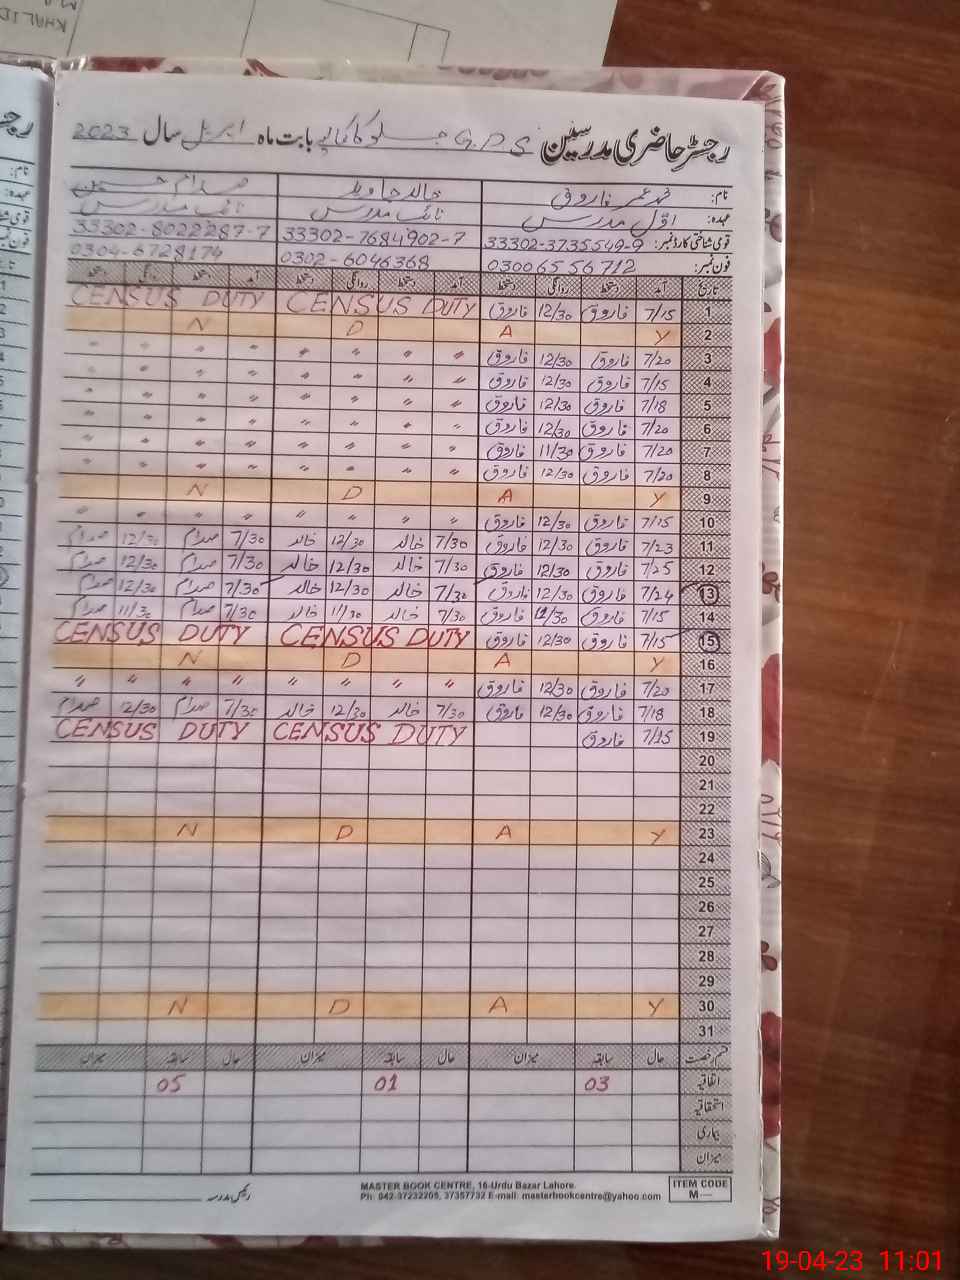 KHALID
رجسٹر حاضری مدرسین G.P.S بابت ماہ اپریل سال 2023
نام: محمد عمر فاروق خالد جاوید صدام حسین
عہدہ: اوّل مدرس نائب مدرس نائب مدرس
قومی شناختی کارڈ نمبر: 33302-3735549-9 33302-7684902-7 33302-8022287-7
فون نمبر: 03006556712 0302-6046368 0304-6728174
تاریخ آمد دستخط روانگی دستخط آمد دستخط روانگی دستخط آمد دستخط روانگی دستخط
1 7/15 فاروق 12/30 فاروق CENSUS DUTY CENSUS DUTY
2 N D A Y
3 7/20 فاروق 12/30 فاروق " " " " " " " "
4 7/15 فاروق 12/30 فاروق " " " " " " " "
5 7/18 فاروق 12/30 فاروق " " " " " " " "
6 7/20 فاروق 12/30 فاروق " " " " " " " "
7 7/20 فاروق 11/30 فاروق " " " " " " " "
8 7/20 فاروق 12/30 فاروق " " " " " " " "
9 N D A Y
10 7/15 فاروق 12/30 فاروق " " " " " " " "
11 7/23 فاروق 12/30 فاروق 7/30 خالد 12/30 خالد 7/30 صدام 12/30 صدام
12 7/25 فاروق 12/30 فاروق 7/30 خالد 12/30 خالد 7/30 صدام 12/30 صدام
13 7/24 فاروق 12/30 فاروق 7/30 خالد 12/30 خالد 7/30 صدام 12/30 صدام
14 7/15 فاروق 11/30 فاروق 7/30 خالد 11/30 خالد 7/30 صدام 11/30 صدام
15 7/15 فاروق 12/30 فاروق CENSUS DUTY CENSUS DUTY
16 N D A Y
17 7/20 فاروق 12/30 فاروق " " " " " " " "
18 7/18 فاروق 12/30 فاروق 7/30 خالد 12/30 خالد 7/30 صدام 12/30 صدام
19 7/15 فاروق CENSUS DUTY CENSUS DUTY
20
21
22
23 N D A Y
24
25
26
27
28
29
30 N D A Y
31
قسم رخصت حال سابقہ میزان حال سابقہ میزان حال سابقہ میزان
اتفاقیہ 03 01 05
استحقاقیہ
بیماری
میزان
رئیس مدرسہ
MASTER BOOK CENTRE, 16-Urdu Bazar Lahore.
Ph: 042-37232205, 37357732 E-mail: masterbookcentre@yahoo.com
ITEM CODE
M----
19-04-23 11:01